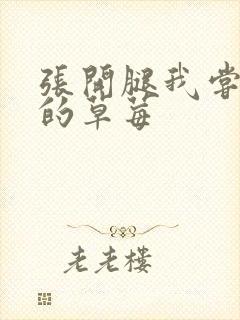 張開腿我嘗
的草莓
老老樓